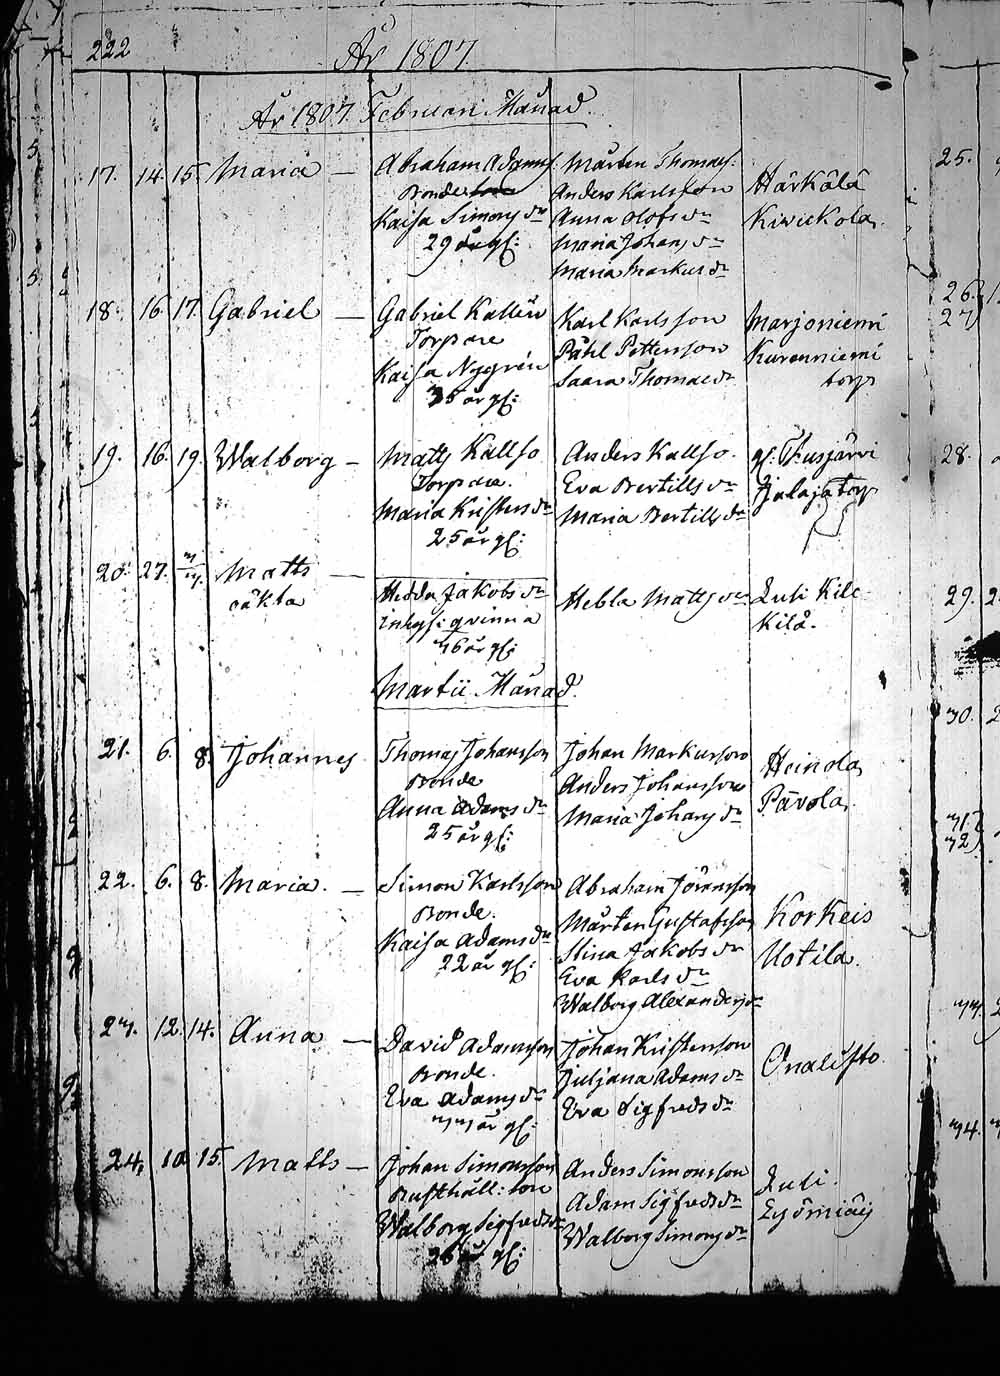 222
År 1807.
År 1807. Februari Månad.
17. 14. 15. Maria —
Abraham Adamss.
Bonde
Kaisa Simons dr
29 år gl:
Mårten Thomass.
Anders Karlsson
Anna Olofs dr
Maria Johans dr
Maria Markus dr
Härkälä
Kivickola.
18. 16. 17. Gabriel —
Gabriel Kallén
Torpare
Kaisa Nygrén
35 år gl:
Karl Karlsson
Påhl Pettersson
Saara Thomae dr
Marjoniemi
Kurenniemi
torp
19. 16. 19. Walborg —
Matts Kallso
Torpare.
Maria Kristers dr
25 år gl:
Anders Kallso.
Eva Bertills dr
Maria Bertills dr
gl: Thusjärvi
Jalaja torp
20. 27. 3/3. Matts —
oäkta
Hedda Jakobs dr
inhys: qvinna
36 år gl:
Hebla Matts dr
Kilå.
Martii Månad.
21. 6. 8. Johannes
Thomas Johansson
Bonde
Anna Adams dr
25 år gl:
Johan Markusson
Anders Johansson
Maria Johans dr
Heinola
Pävola.
22. 6. 8. Maria. —
Simon Karlsson
Bonde.
Kaisa Adams dr
22 år gl:
Abraham Göransson
Mårten Gustafsson
Stina Jakobs dr
Eva Karls dr
Walborg Alexanders dr
Korkeis
Uotila.
23. 12. 14. Anna —
David Adamsson
Bonde.
Eva Adams dr
33 år gl:
Johan Kristersson
Juljana Adams dr
Eva Sigfreds dr
Onalisto
24. 10 15. Matts —
Johan Simonsson
Rusthåll: son
Walborg Sigfreds dr
26 år gl:
Anders Simonsson
Adam Sigfreds dr
Walborg Simons dr
25.
26.
27
28.
29. 2
30. 2
31.
32
33. 2
34.